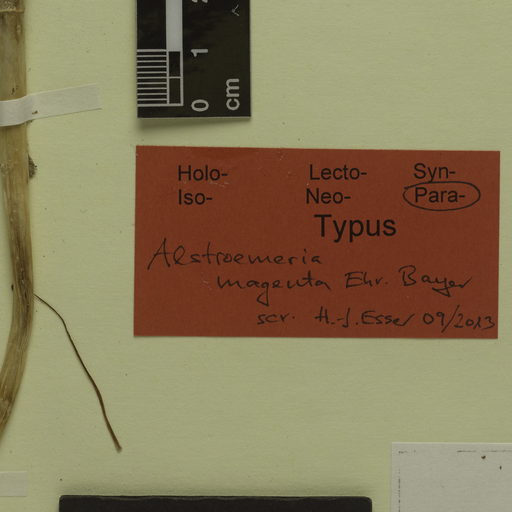 0 1 2
cm
Holo- Lecto- Syn-
Iso- Neo- Para-
Typus
Alstroemeria
magenta Ehr. Bayer
scr. H.-J. Esser 09/2013